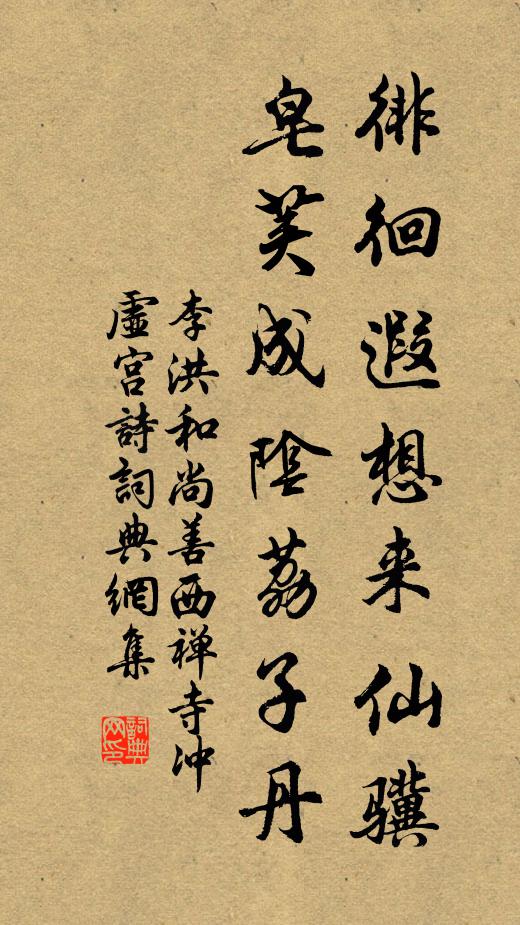 徘徊遐想来仙骥
皂荚成陰荔子丹
李洪和尚善西禅寺冲
虛宫詩詞典網集
詞典网印